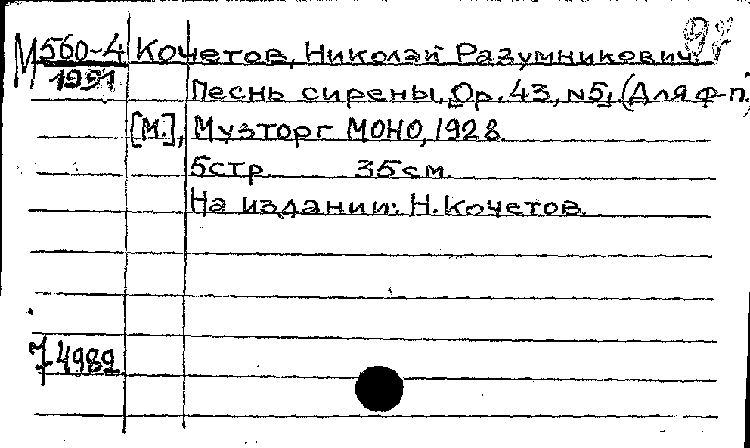 М 560-4 Кочетов, Николай Разумникович.
1991
Песнь сирены, Op. 43, №5, (Для ф-п.
[М.], Музторг МОНО, 1928.
5 стр. 35 см.
На издании: Н. Кочетов.
4989